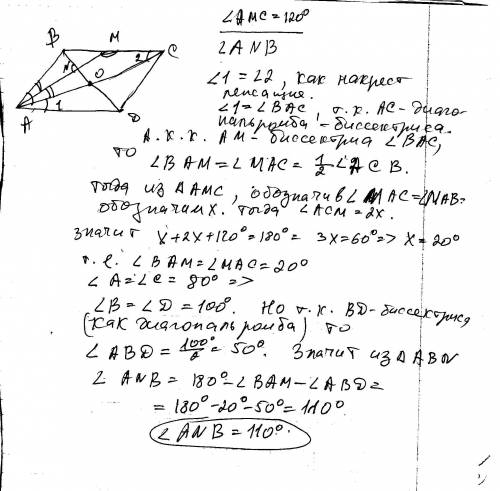 ∠AMC = 120°
∠ANB
B M C
N O 2
A 1 D
∠1 = ∠2, как накрест
лежащие.
∠1 = ∠BAC, т.к. AC - диаго-
наль ромба - биссектриса.
А т.к. AM - биссектриса ∠BAC,
то
∠BAM = ∠MAC = 1/2 ∠ACB.
тогда из ΔAMC, обозначив ∠MAC = ∠NAB =
обозначим x. тогда ∠ACM = 2x.
значит x + 2x + 120° = 180° = 3x = 60° => x = 20°
т.е. ∠BAM = ∠MAC = 20°
∠A = ∠C = 80° =>
∠B = ∠D = 100°. Но т.к. BD - биссектриса
(как диагональ ромба) то
∠ABD = 100°/2 = 50°. Значит из ΔABN
∠ANB = 180° - ∠BAM - ∠ABD =
= 180° - 20° - 50° = 110°.
∠ANB = 110°.